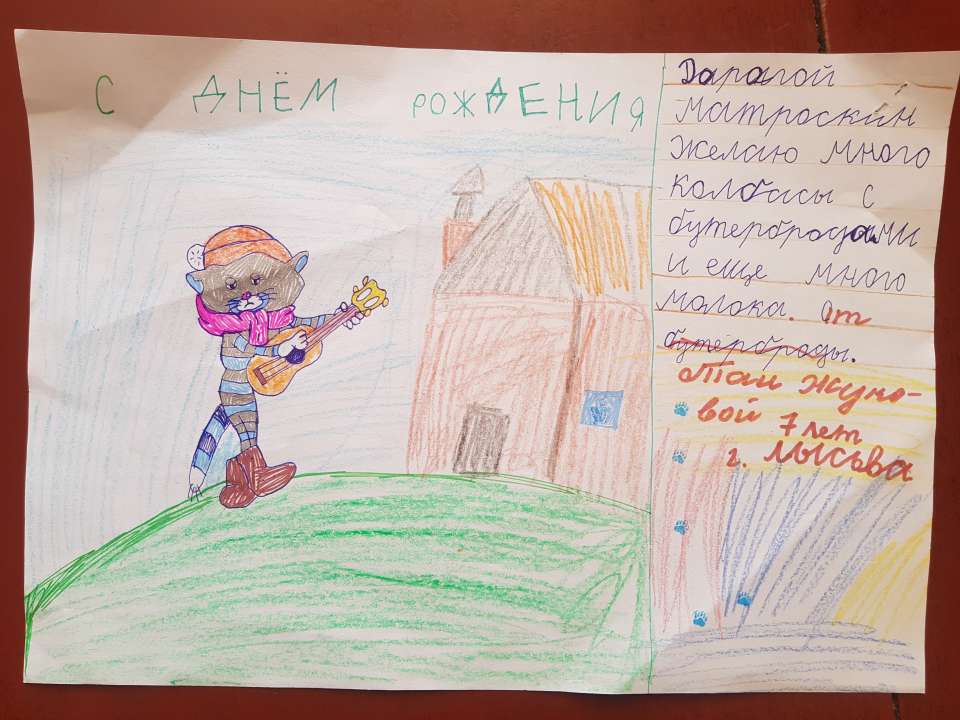 С ДНЁМ РОЖДЕНИЯ
Дарагой
Матроскин
Желаю много
Колбасы с
бутербродами
и еще много
молока. От
бутерброды.
Таи Жуко-
вой 7 лет
г. Лысьва